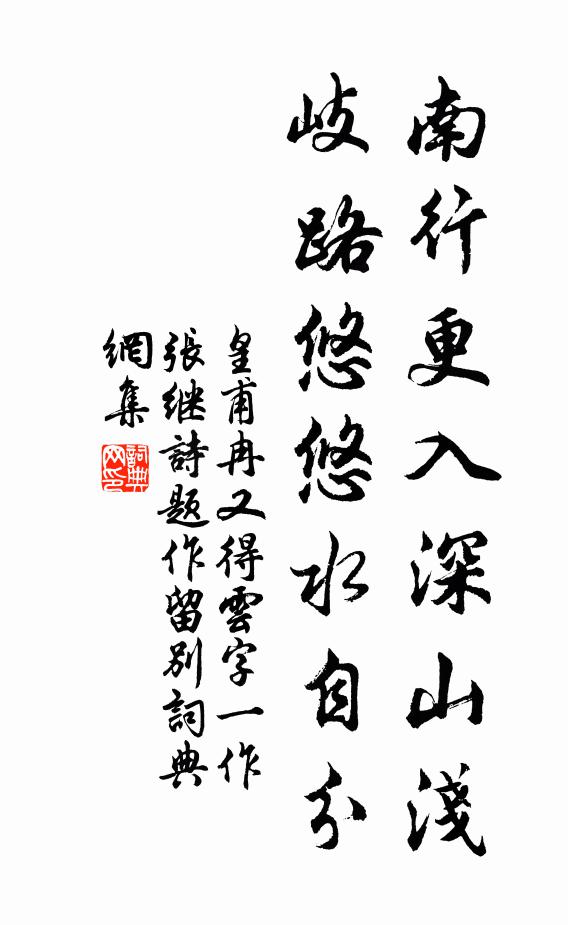 南行更入深山淺
岐路悠悠水自分
皇甫冉又得雲字一作
張继詩題作留別詞典
網集
詞典
网印